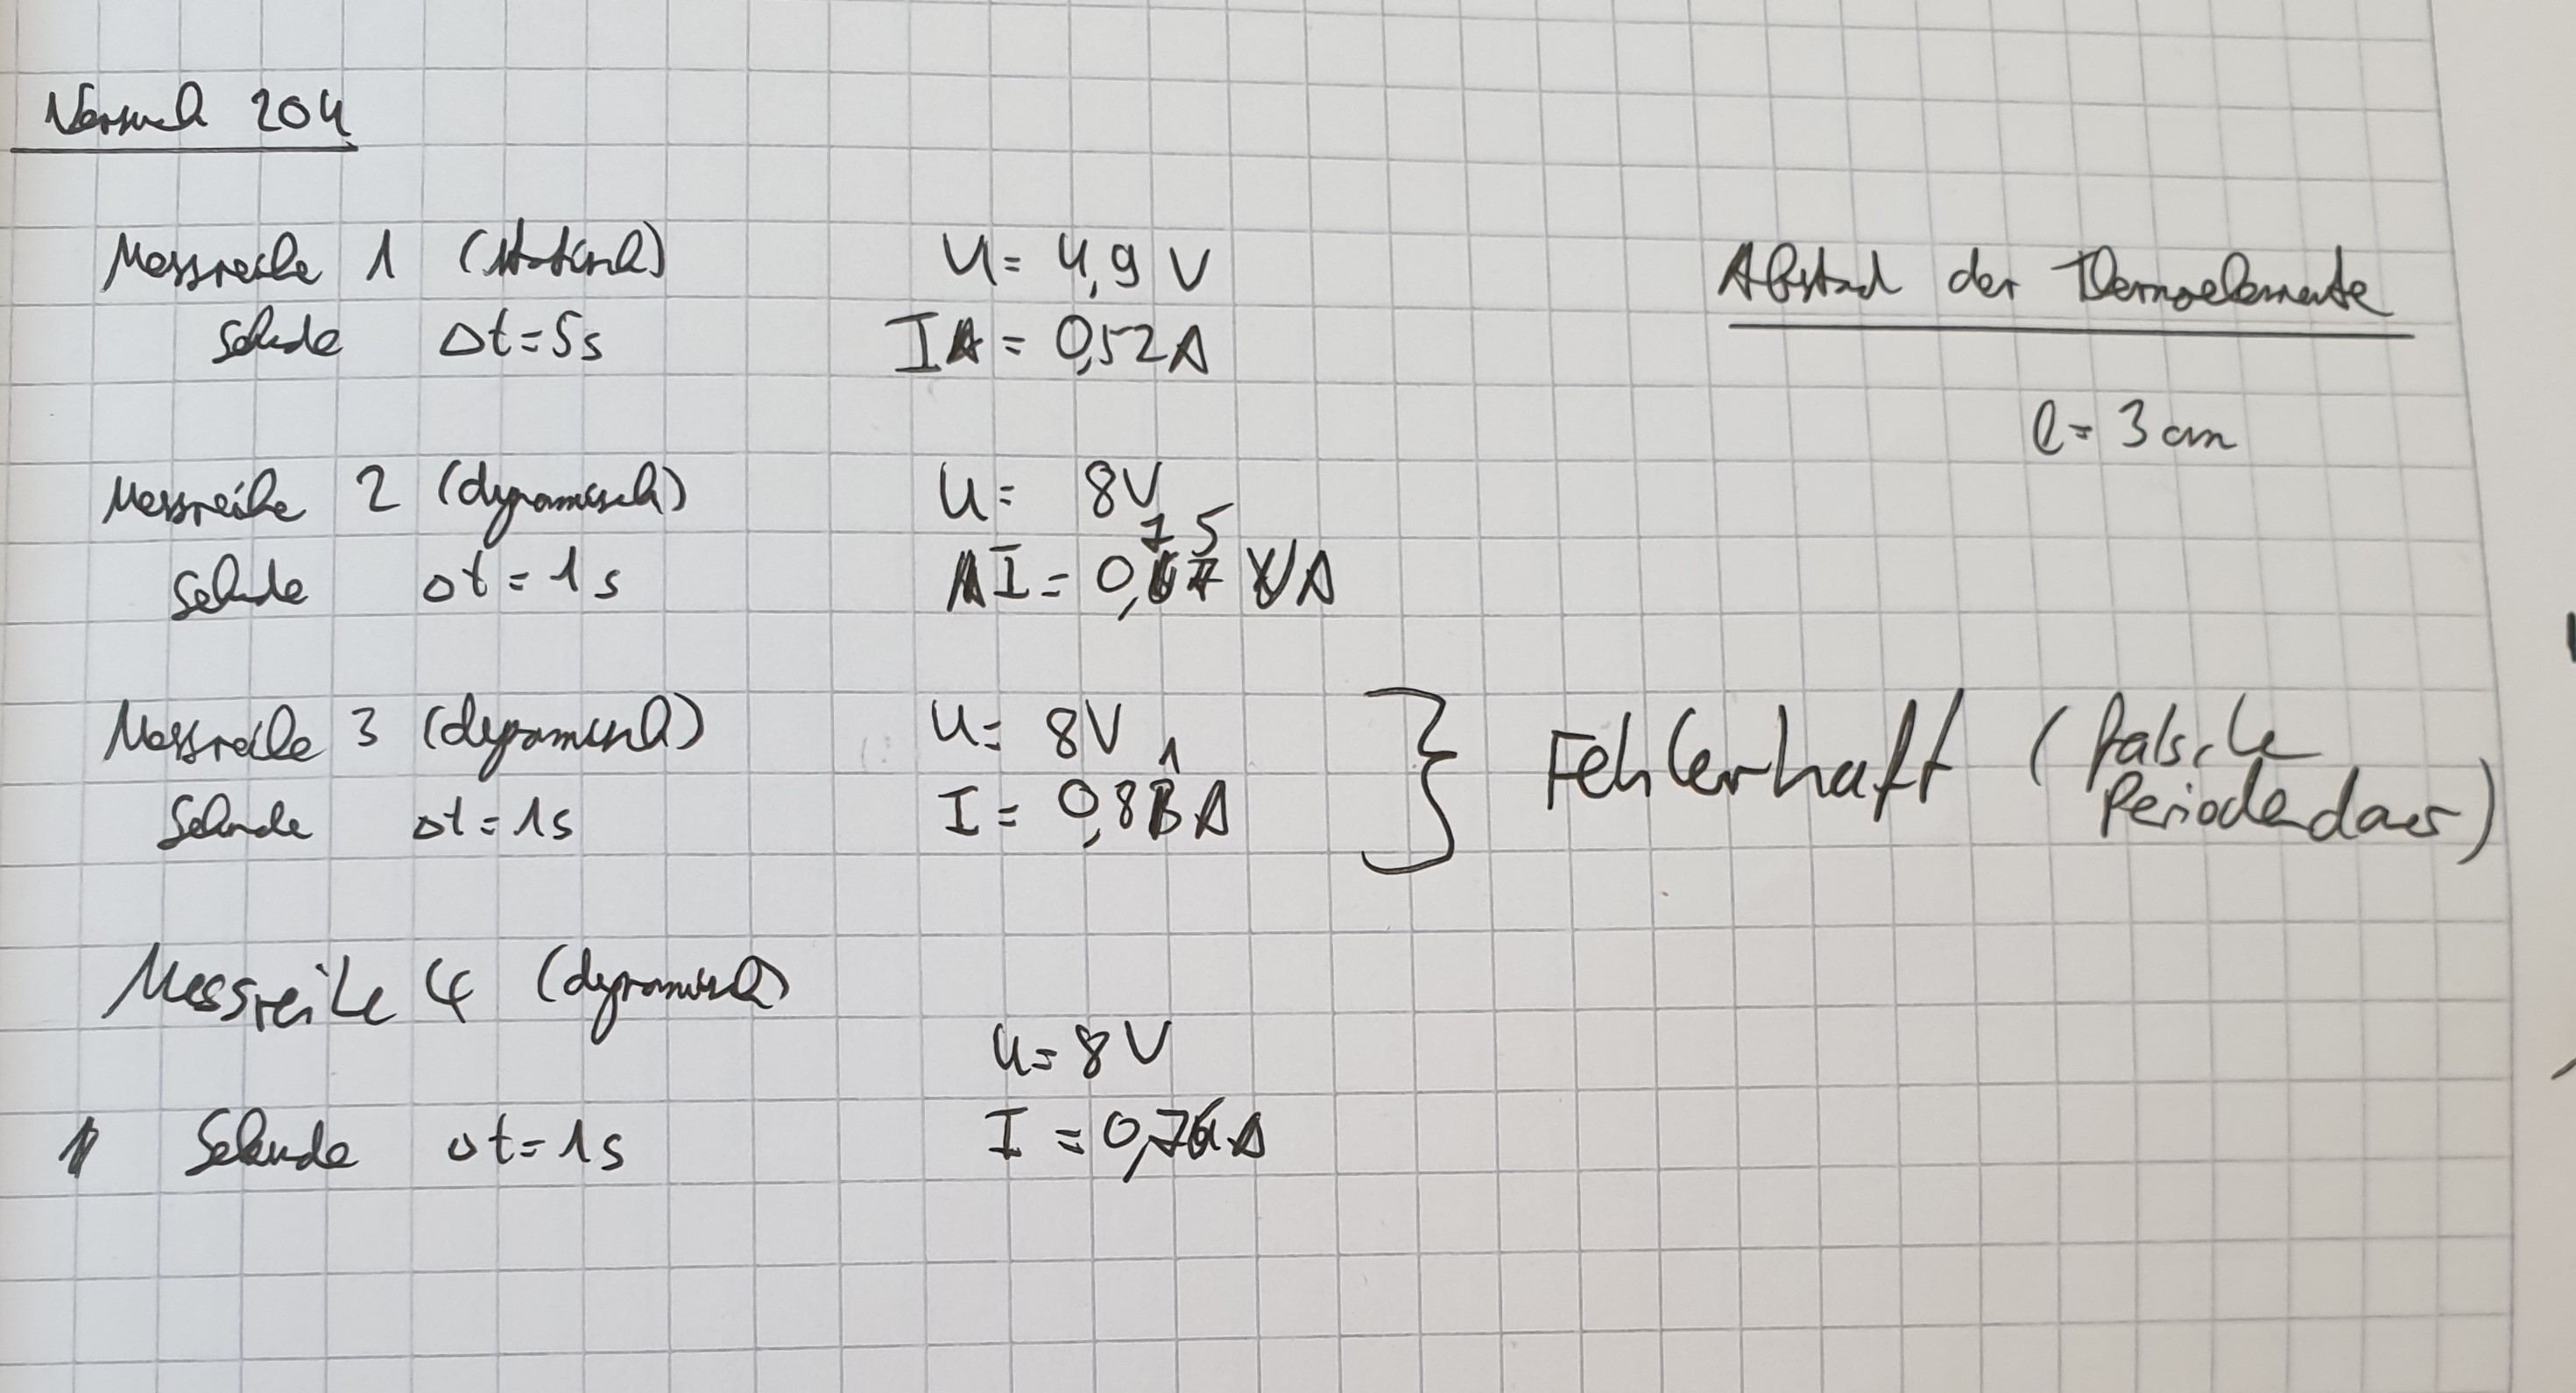 Versuch 204
Messreihe 1 (statisch) U = 4,9 V
Sekunde Δt = 5s I = 0,52A
Abstand der Thermoelemente
l = 3 cm
Messreihe 2 (dynamisch) U = 8V
Sekunde Δt = 1s I = 0,75 A
Messreihe 3 (dynamisch) U = 8V
Sekunde Δt = 1s I = 0,81 A
} Fehlerhaft (falsche
Periodendauer)
Messreihe 4 (dynamisch)
U = 8V
Sekunde Δt = 1s